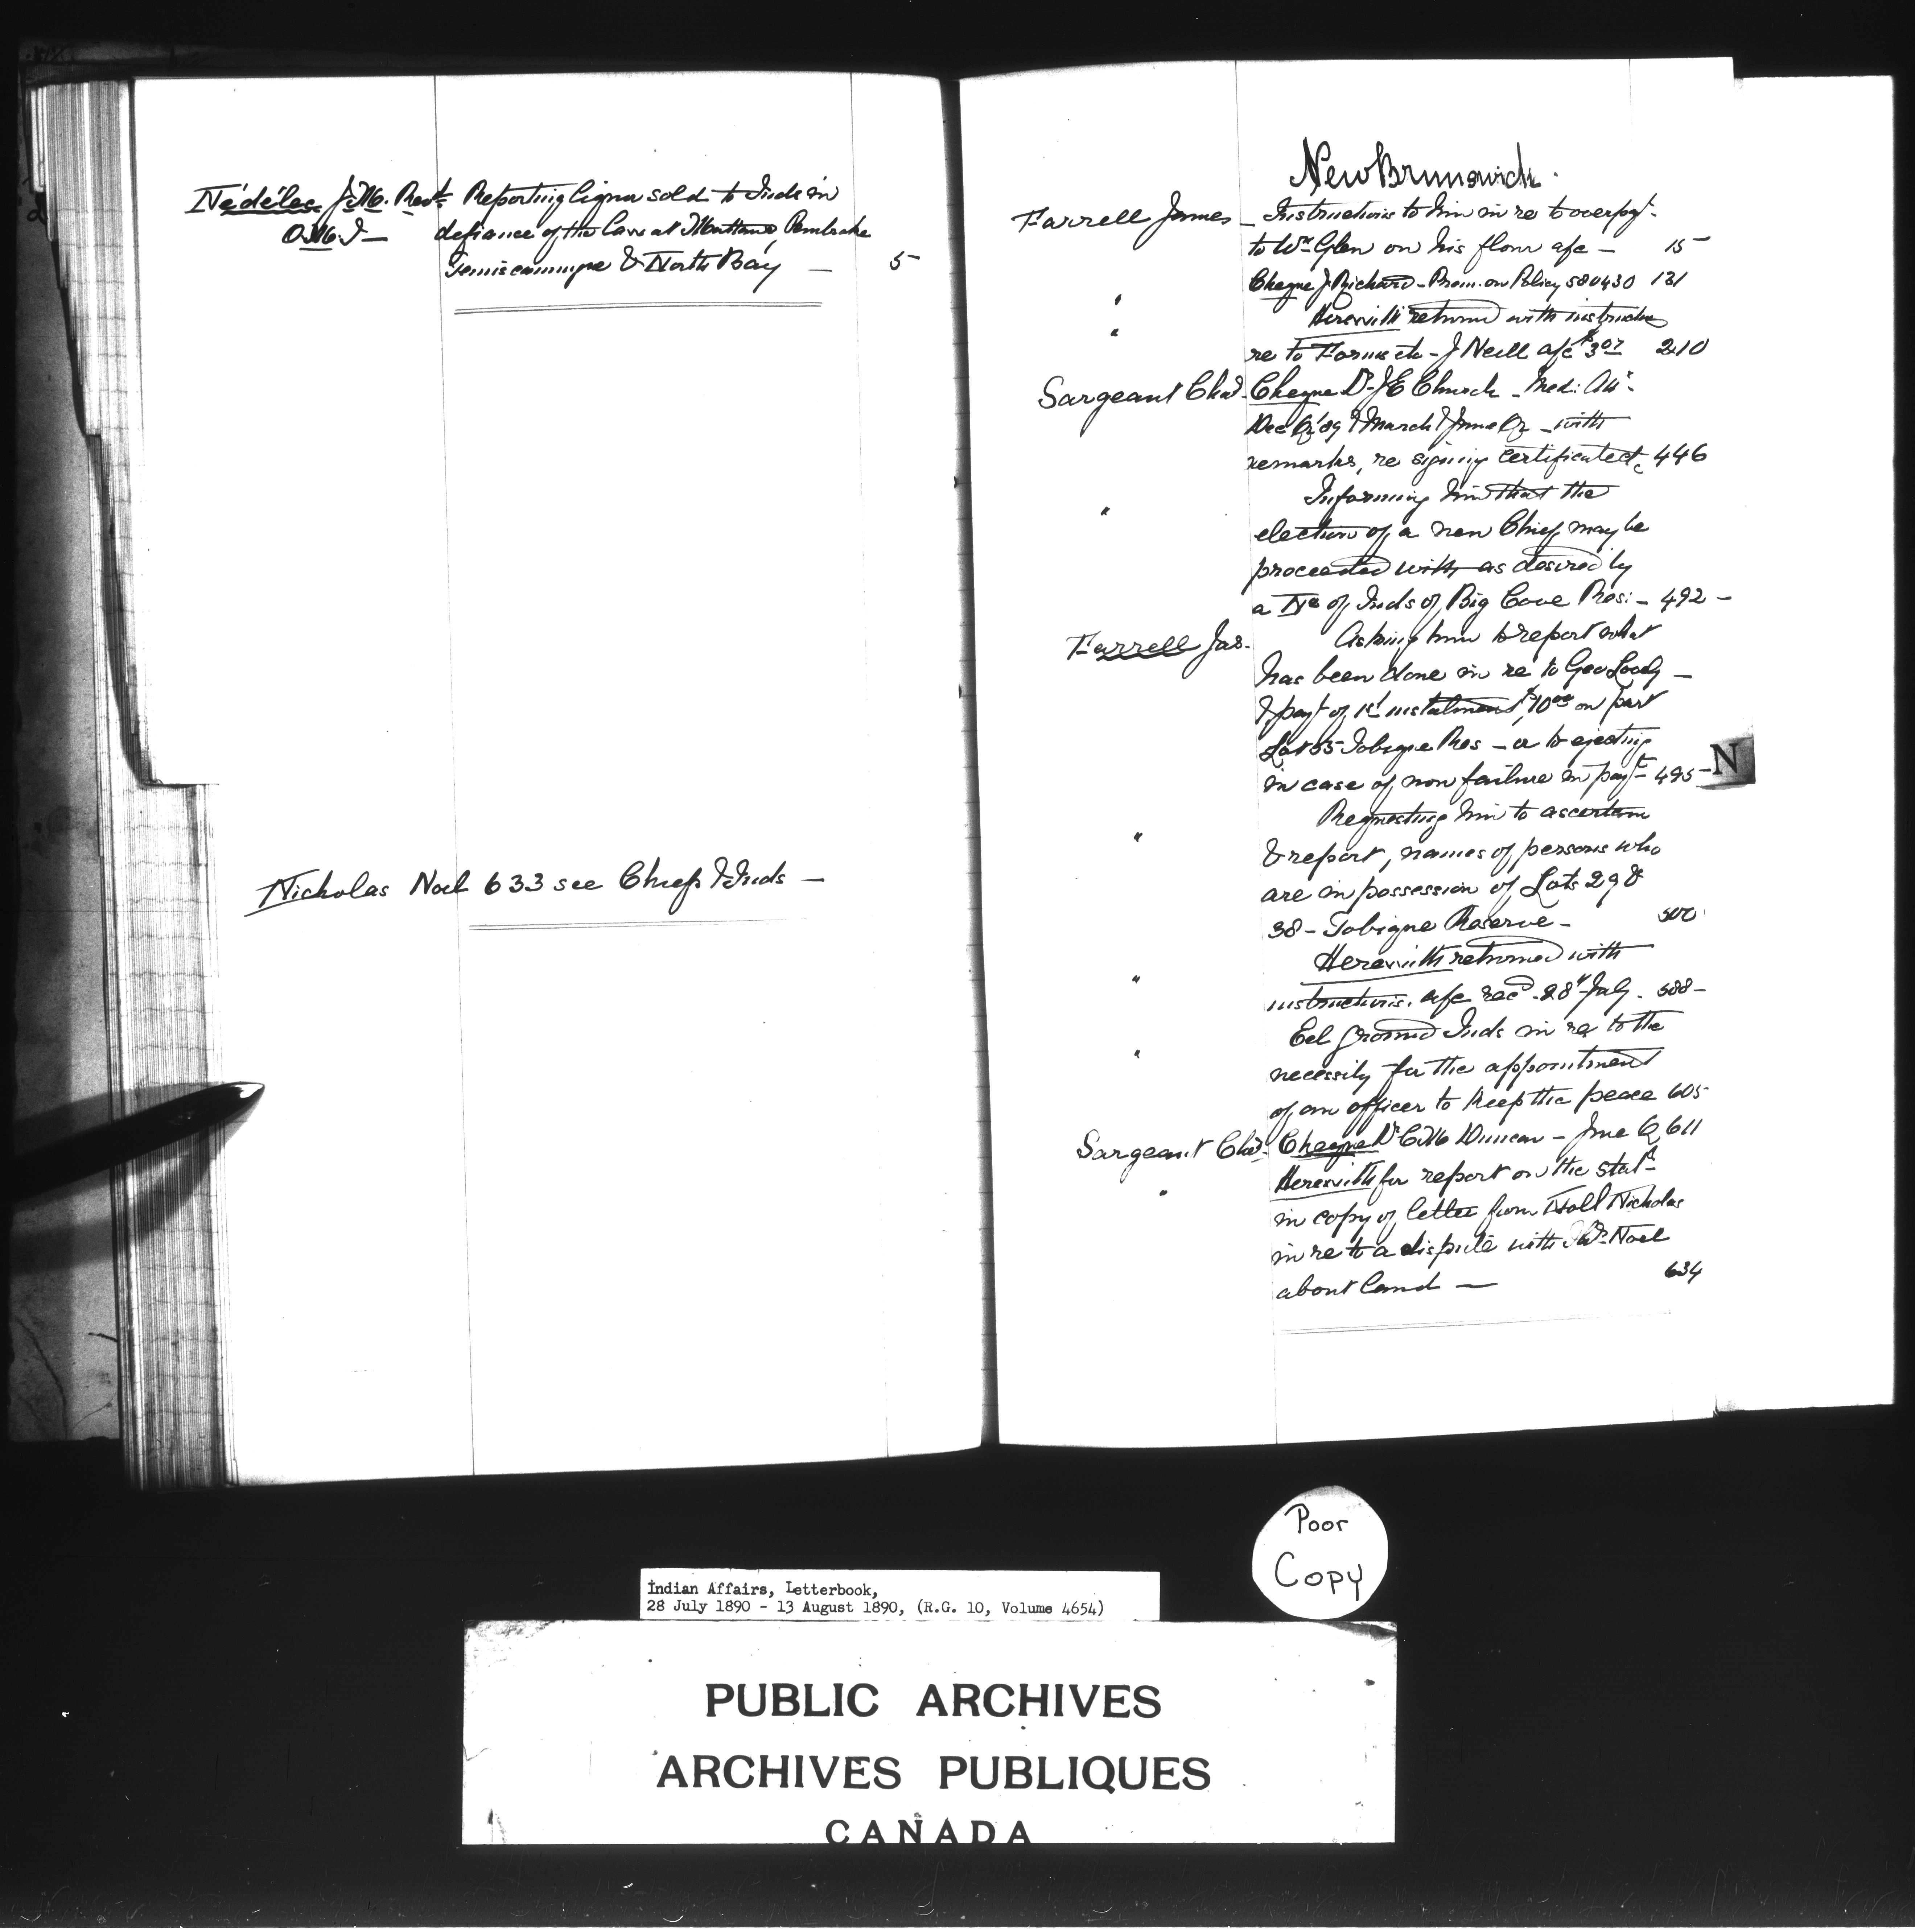 Nédélec J.M. Revd. Reporting liquor sold to Inds in
O.M.I — defiance of the law at Mattawa, Pembroke
Temiscamingue & North Bay — 5
Nicholas Noel 633 see Chiefs & Inds —
New Brunswick.
Farrell James — Instructions to him in re to overpayt.
to Wm Glen on his flour a/c — 15
" Cheque J. Richard - Prem. on Policy 580430 131
" Herewith returned with instructns
re to Forms etc - J Neill a/c $3.07 210
Sargeant Chas. Cheque Dr. J E Church - Med: Att:
Dec Qr '89 & March & June Qr - with
remarks, re signing certificate etc 446
" Informing him that the
election of a new Chief may be
proceeded with as desired by
a No of Inds of Big Cove Res: - 492 -
Farrell Jas. Asking him to report what
has been done in re to Geo
& payt of 1st instalment $10.00 on part
Lot 35 Tobique Res - or to ejecting
in case of non failure in payt - 495 -
" Requesting him to ascertain
& report, names of persons who
are in possession of Lots 29 &
38 - Tobique Reserve - 500
" Herewith returned with
instructions. a/c recd. 28th July. 588 -
" Eel Ground Inds in re to the
necessity for the appointment
of an officer to keep the peace 605
Sargeant Chas. Cheque Dr C M Duncan - June Q 611
" Herewith for report on the statt
in copy of letter from Noel Nicholas
in re to a dispute with Noel
about land — 634
N
Poor
Copy
Indian Affairs, Letterbook,
28 July 1890 - 13 August 1890, (R.G. 10, Volume 4654)
PUBLIC ARCHIVES
ARCHIVES PUBLIQUES
CANADA